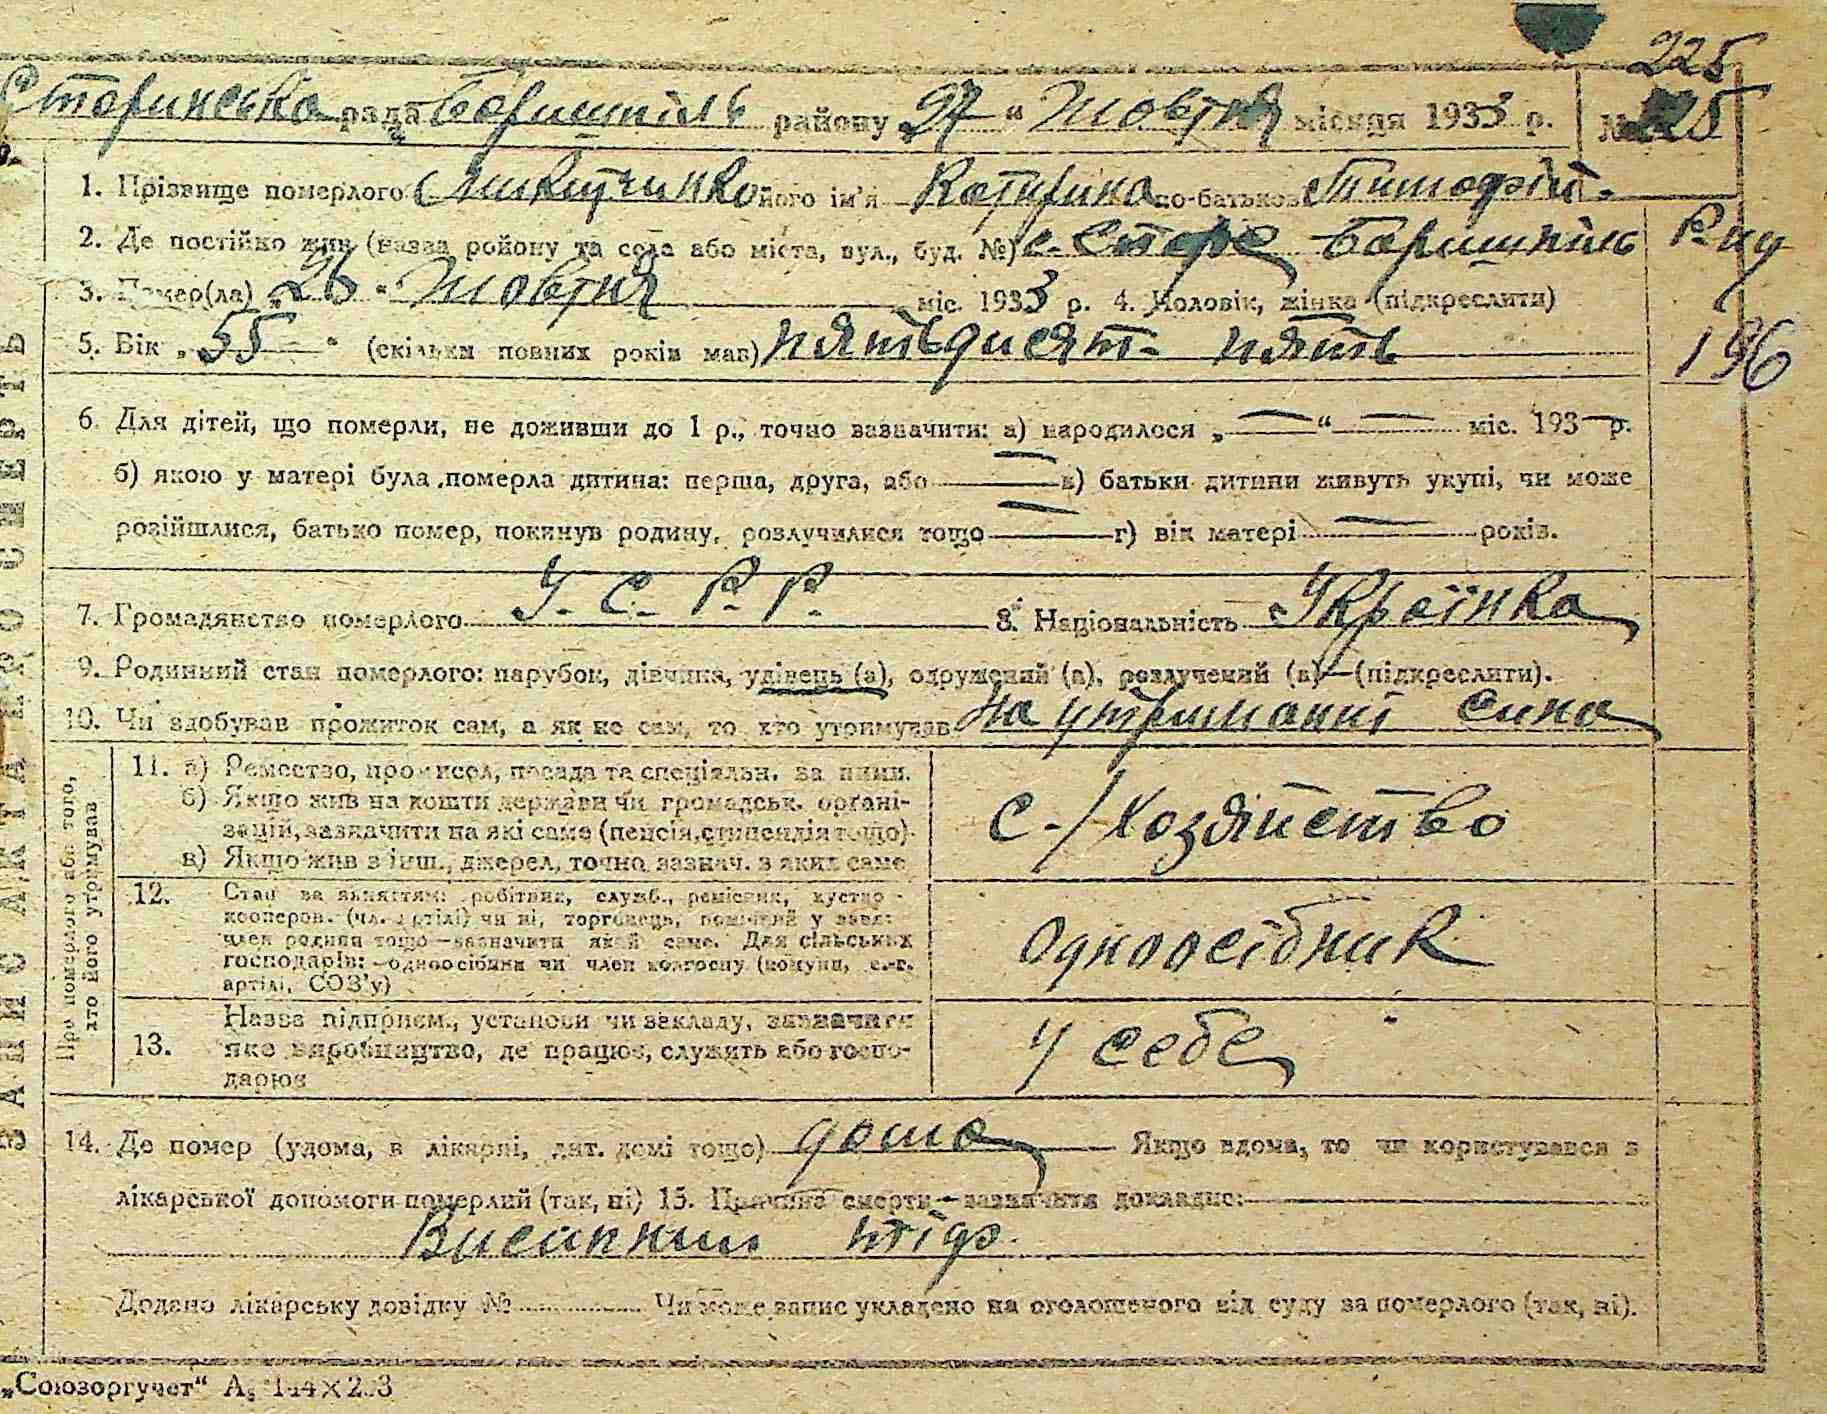 225
Старинська рада Боришпіль району „27“ Жовтня місяця 1933 р. № 225
1. Прізвище померлого Микитчинко його ім'я Катирина по-батькові Тимофій.
2. Де постійно жив (назва району та села або міста, вул., буд. №) с. Старе Боришпіль
3. Помер(ла) „26“ Жовтня міс. 1933 р. 4. Чоловік, жінка (підкреслити)
5. Вік „55“ (скільки повних років мав) пятьдисят пять
196
6. Для дітей, що померли, не доживши до 1 р., точно зазначити: а) народилося „—“ — міс. 193— р.
б) якою у матері була померла дитина: перша, друга, або — в) батьки дитини живуть укупі, чи може
розійшлися, батько помер, покинув родину, розлучилися тощо — г) вік матері — років.
7. Громадянство померлого У. С. Р. Р. 8. Національність Українка
9. Родинний стан померлого: парубок, дівчина, удівець (а), одружений (а), розлучений (а)—(підкреслити).
10. Чи здобував прожиток сам, а як не сам, то хто утримував На утриманні сина
Про померлого або того, хто його утримував
11. а) Ремество, промисел, посада та спеціяльн. за ними.
б) Якщо жив на кошти держави чи громадськ. органі-
зацій, зазначити на які саме (пенсія, стипендія тощо).
в) Якщо жив з інш. джерел, точно зазнач. з яких саме
с-/хозяйство
12. Стан за заняттям: робітник, служб., ремісник, кустар-
кооперов. (чл. артілі) чи ні, торговець,
член родини тощо—зазначити який саме. Для сільських
господарів:—одноосібник чи член колгоспу (комуни, с.-г.
артілі, СОЗ'у)
Одноосібник
13. Назва підприєм., установи чи закладу, зазначити
яке виробництво, де працює, служить або госпо-
дарює
У себе
14. Де помер (удома, в лікарні, дит. домі тощо) дома Якщо вдома, то чи користувався з
лікарської допомоги померлий (так, ні) 15. Причина смерти—зазначити докладно:
Висипний тіф.
Додано лікарську довідку № Чи може запис укладено на оголошеного від суду за померлого (так, ні).
ЗАПИС АКТА ПРО СМЕРТЬ
„Союзоргучет“